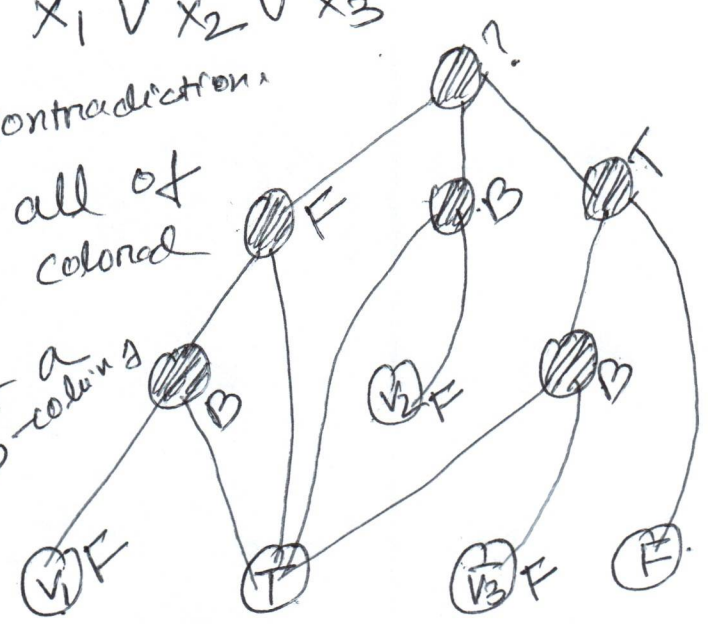 X₁ V X₂ V X₃
?
ontradiction.
T
all of
F
B
colored
a
3-coloring
B
B
V₂ F
V₁ F
T
V₃ F
F